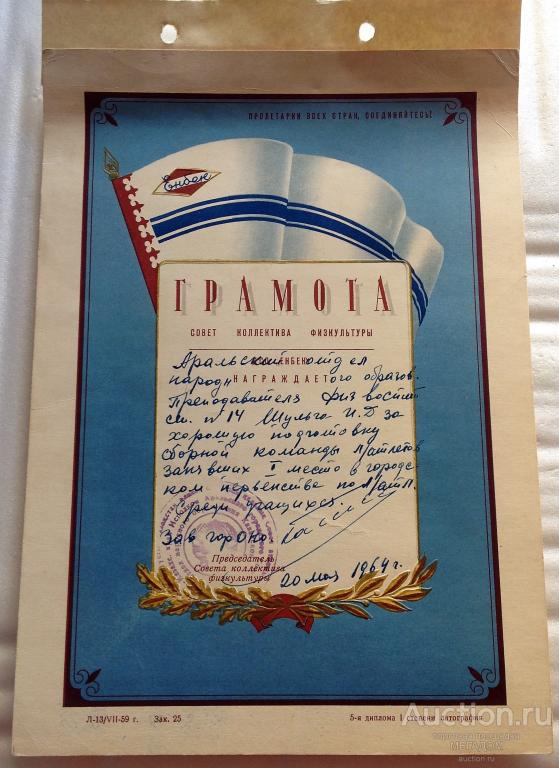 ПРОЛЕТАРИИ ВСЕХ СТРАН, СОЕДИНЯЙТЕСЬ!
Енбек
ГРАМОТА
СОВЕТ КОЛЛЕКТИВА ФИЗКУЛЬТУРЫ
Аральский отдел
народного образов.
НАГРАЖДАЕТ
преподавателя физ восп
с.ш. №14 Шульга И.Д за
хорошую подготовку
сборной команды л/атлетов
занявших I место в городс
ком первенстве по л/атл.
среди учащихся.
Зав горОНО
Председатель
Совета коллектива
физкультуры
20 мая 1964 г.
Л-13/VII-59 г. Зак. 25
5-я диплома I степени автография
Auction.ru
МЕГАДОМ
auction.ru